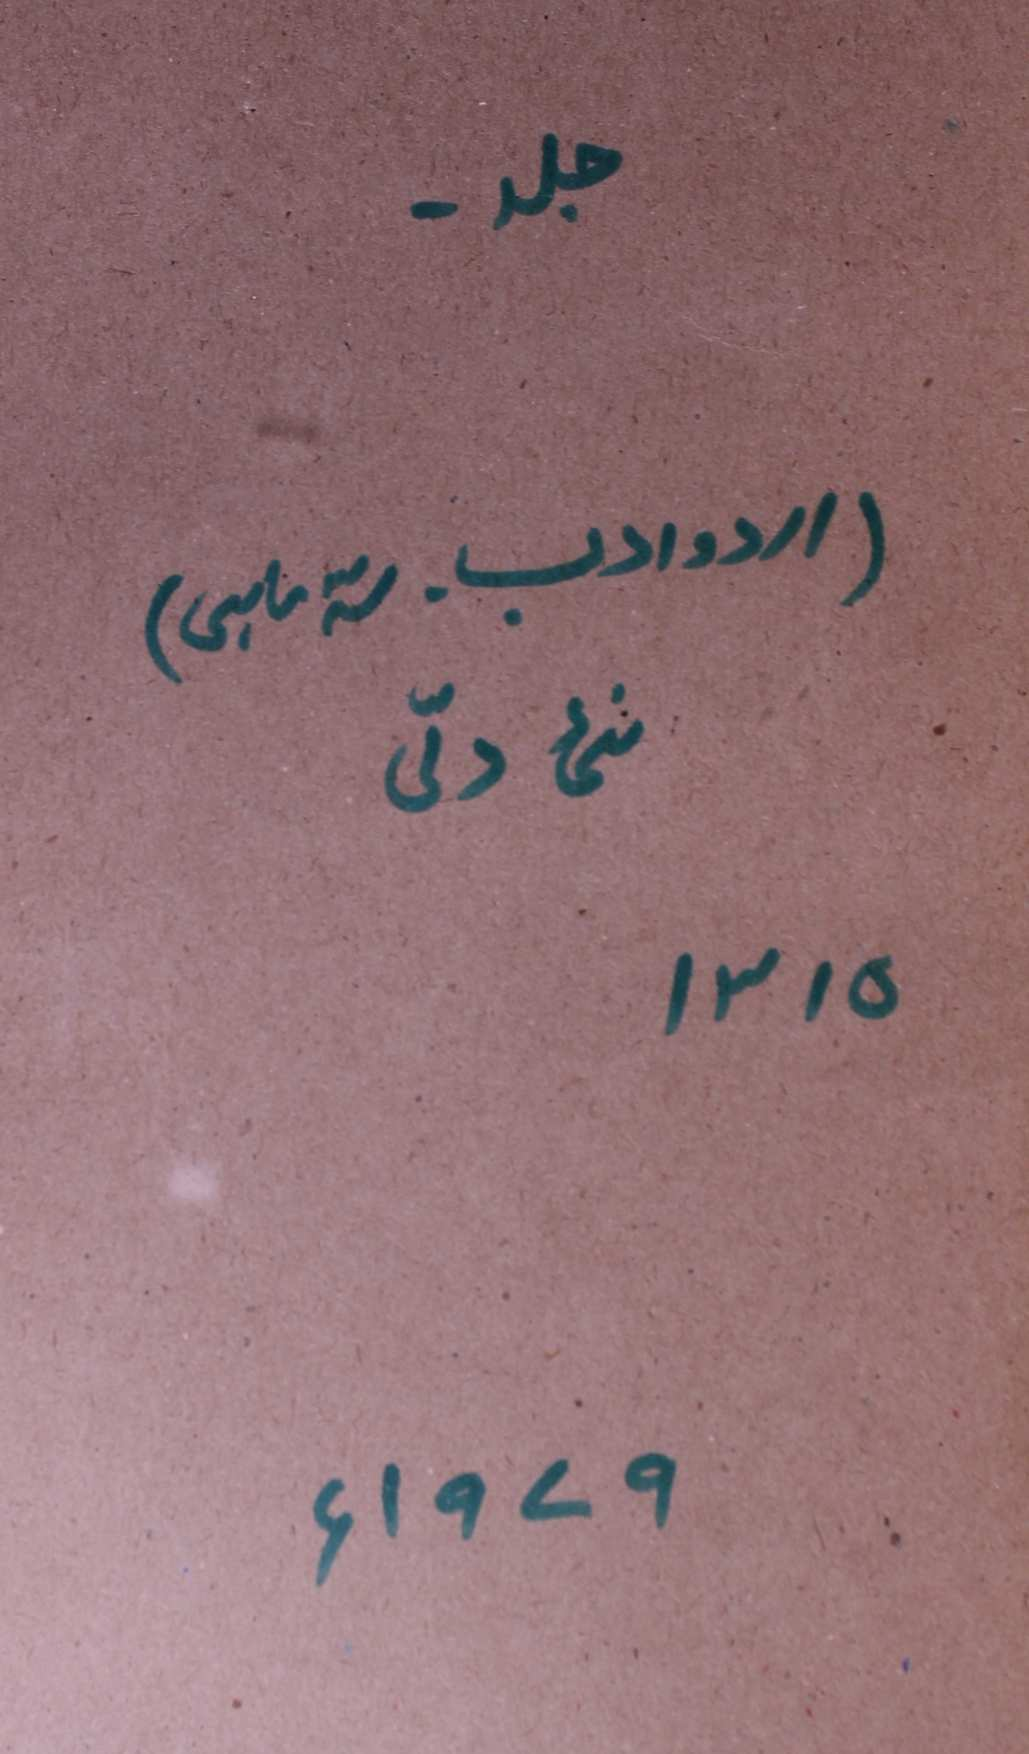 جلد -
(اردو ادب - سہ ماہی)
نئی دلّی
۱۳۱۵
۱۹۷۹ء